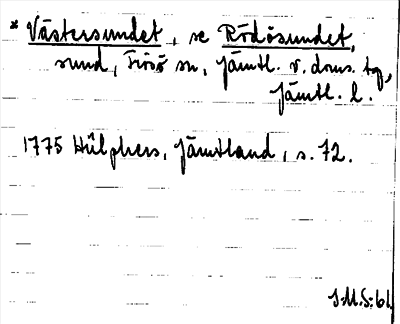 * Västersundet, se Rödösundet,
sund, Frösö sn, Jämtl. v. doms. tg,
Jämtl. l.
1775 Hülphers, Jämtland, s. 72.
J.M.S:61.